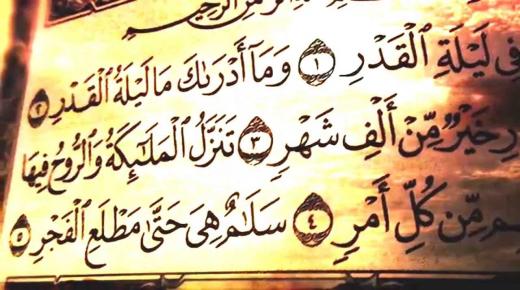 الرحمن الرحيم
فِى لَيْلَةِ ٱلْقَدْرِ ١ وَمَآ أَدْرَىٰكَ مَا لَيْلَةُ ٱلْقَدْرِ ٢
خَيْرٌ مِّنْ أَلْفِ شَهْرٍ ٣ تَنَزَّلُ ٱلْمَلَـٰٓئِكَةُ وَٱلرُّوحُ فِيهَا
مِّن كُلِّ أَمْرٍ ٤ سَلَـٰمٌ هِىَ حَتَّىٰ مَطْلَعِ ٱلْفَجْرِ ٥